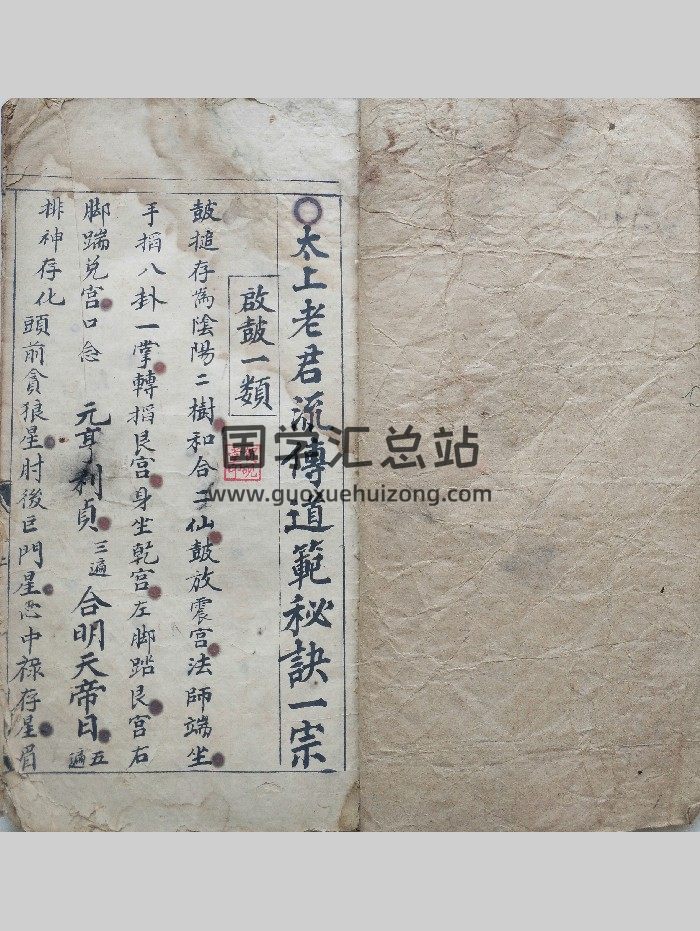 太上老君流傳道範秘訣一宗
啟鼓一類
鼓搥存為陰陽二樹和合二仙鼓放震宮法師端坐
手搯八卦一掌轉搯艮宮身坐乾宮左脚踏艮宮右
脚踹兌宮口念 元亨利貞 三遍 合明天帝日 五遍
排神存化 頭前貪狼星肘後巨門星 中祿存星眉
国学汇总站
www.guoxuehuizong.com